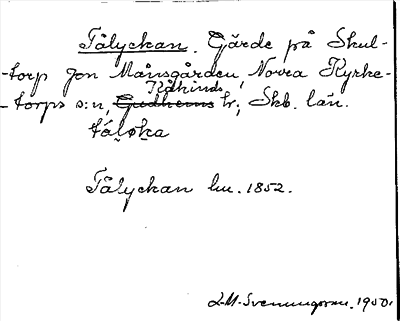 Tålyckan. Gärde på Skul-
-torp Jon Månsgården, Norra Kyrke-
Kåkinds
-torps s:n, Gudhems hr; Skb. län.
tá̰lø̰ka
Tålyckan lm. 1852.
L-M. Svenungsson. 1950.